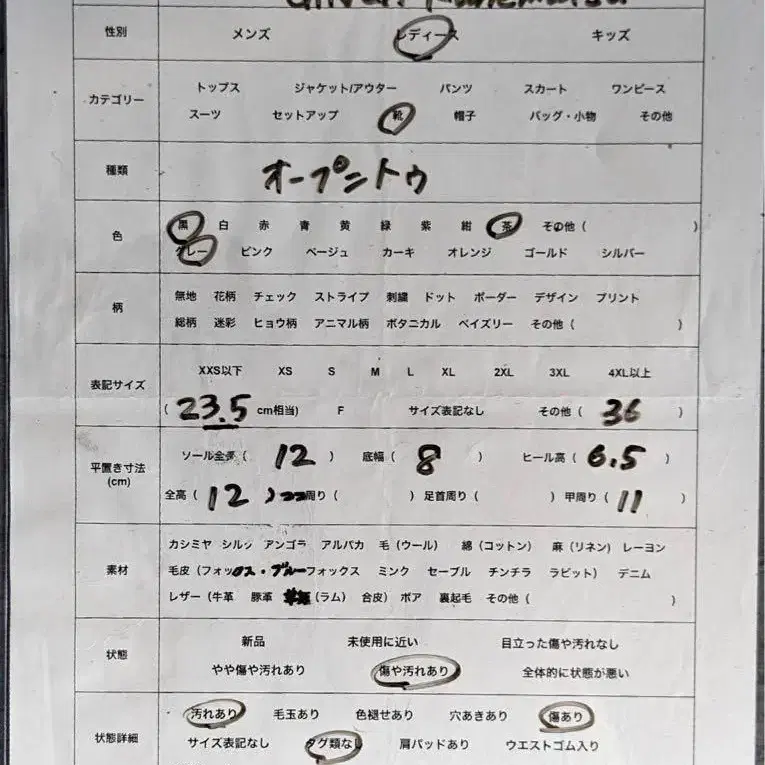 性別 メンズ レディース キッズ
カテゴリー
トップス ジャケット/アウター パンツ スカート ワンピース
スーツ セットアップ 靴 帽子 バッグ・小物 その他
種類 オープントゥ
色
黒 白 赤 青 黄 緑 紫 紺 茶 その他 ( )
グレー ピンク ベージュ カーキ オレンジ ゴールド シルバー
柄
無地 花柄 チェック ストライプ 刺繍 ドット ボーダー デザイン プリント
総柄 迷彩 ヒョウ柄 アニマル柄 ボタニカル ペイズリー その他 ( )
表記サイズ
XXS以下 XS S M L XL 2XL 3XL 4XL以上
( 23.5 cm相当) F サイズ表記なし その他 ( 36 )
平置き寸法
(cm)
ソール全長 ( 12 ) 底幅 ( 8 ) ヒール高 ( 6.5 )
全高 ( 12 ) 周り ( ) 足首周り ( ) 甲周り ( 11 )
素材
カシミヤ シルク アンゴラ アルパカ 毛 (ウール) 綿 (コットン) 麻 (リネン) レーヨン
毛皮 (フォックス・ブルーフォックス ミンク セーブル チンチラ ラビット) デニム
レザー (牛革 豚革 (ラム) 合皮) ボア 裏起毛 その他 ( )
状態
新品 未使用に近い 目立った傷や汚れなし
やや傷や汚れあり 傷や汚れあり 全体的に状態が悪い
状態詳細
汚れあり 毛玉あり 色褪せあり 穴あきあり 傷あり
サイズ表記なし タグ類なし 肩パッドあり ウエストゴム入り